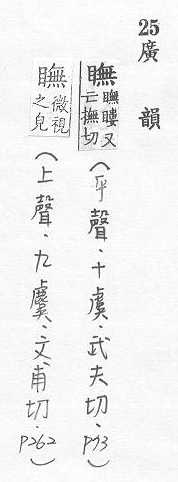 25廣韻
瞴瞴瞜又亡撫切(平聲、十虞、武夫切、p73)
瞴微視之皃(上聲、九麌、文甫切、p262)